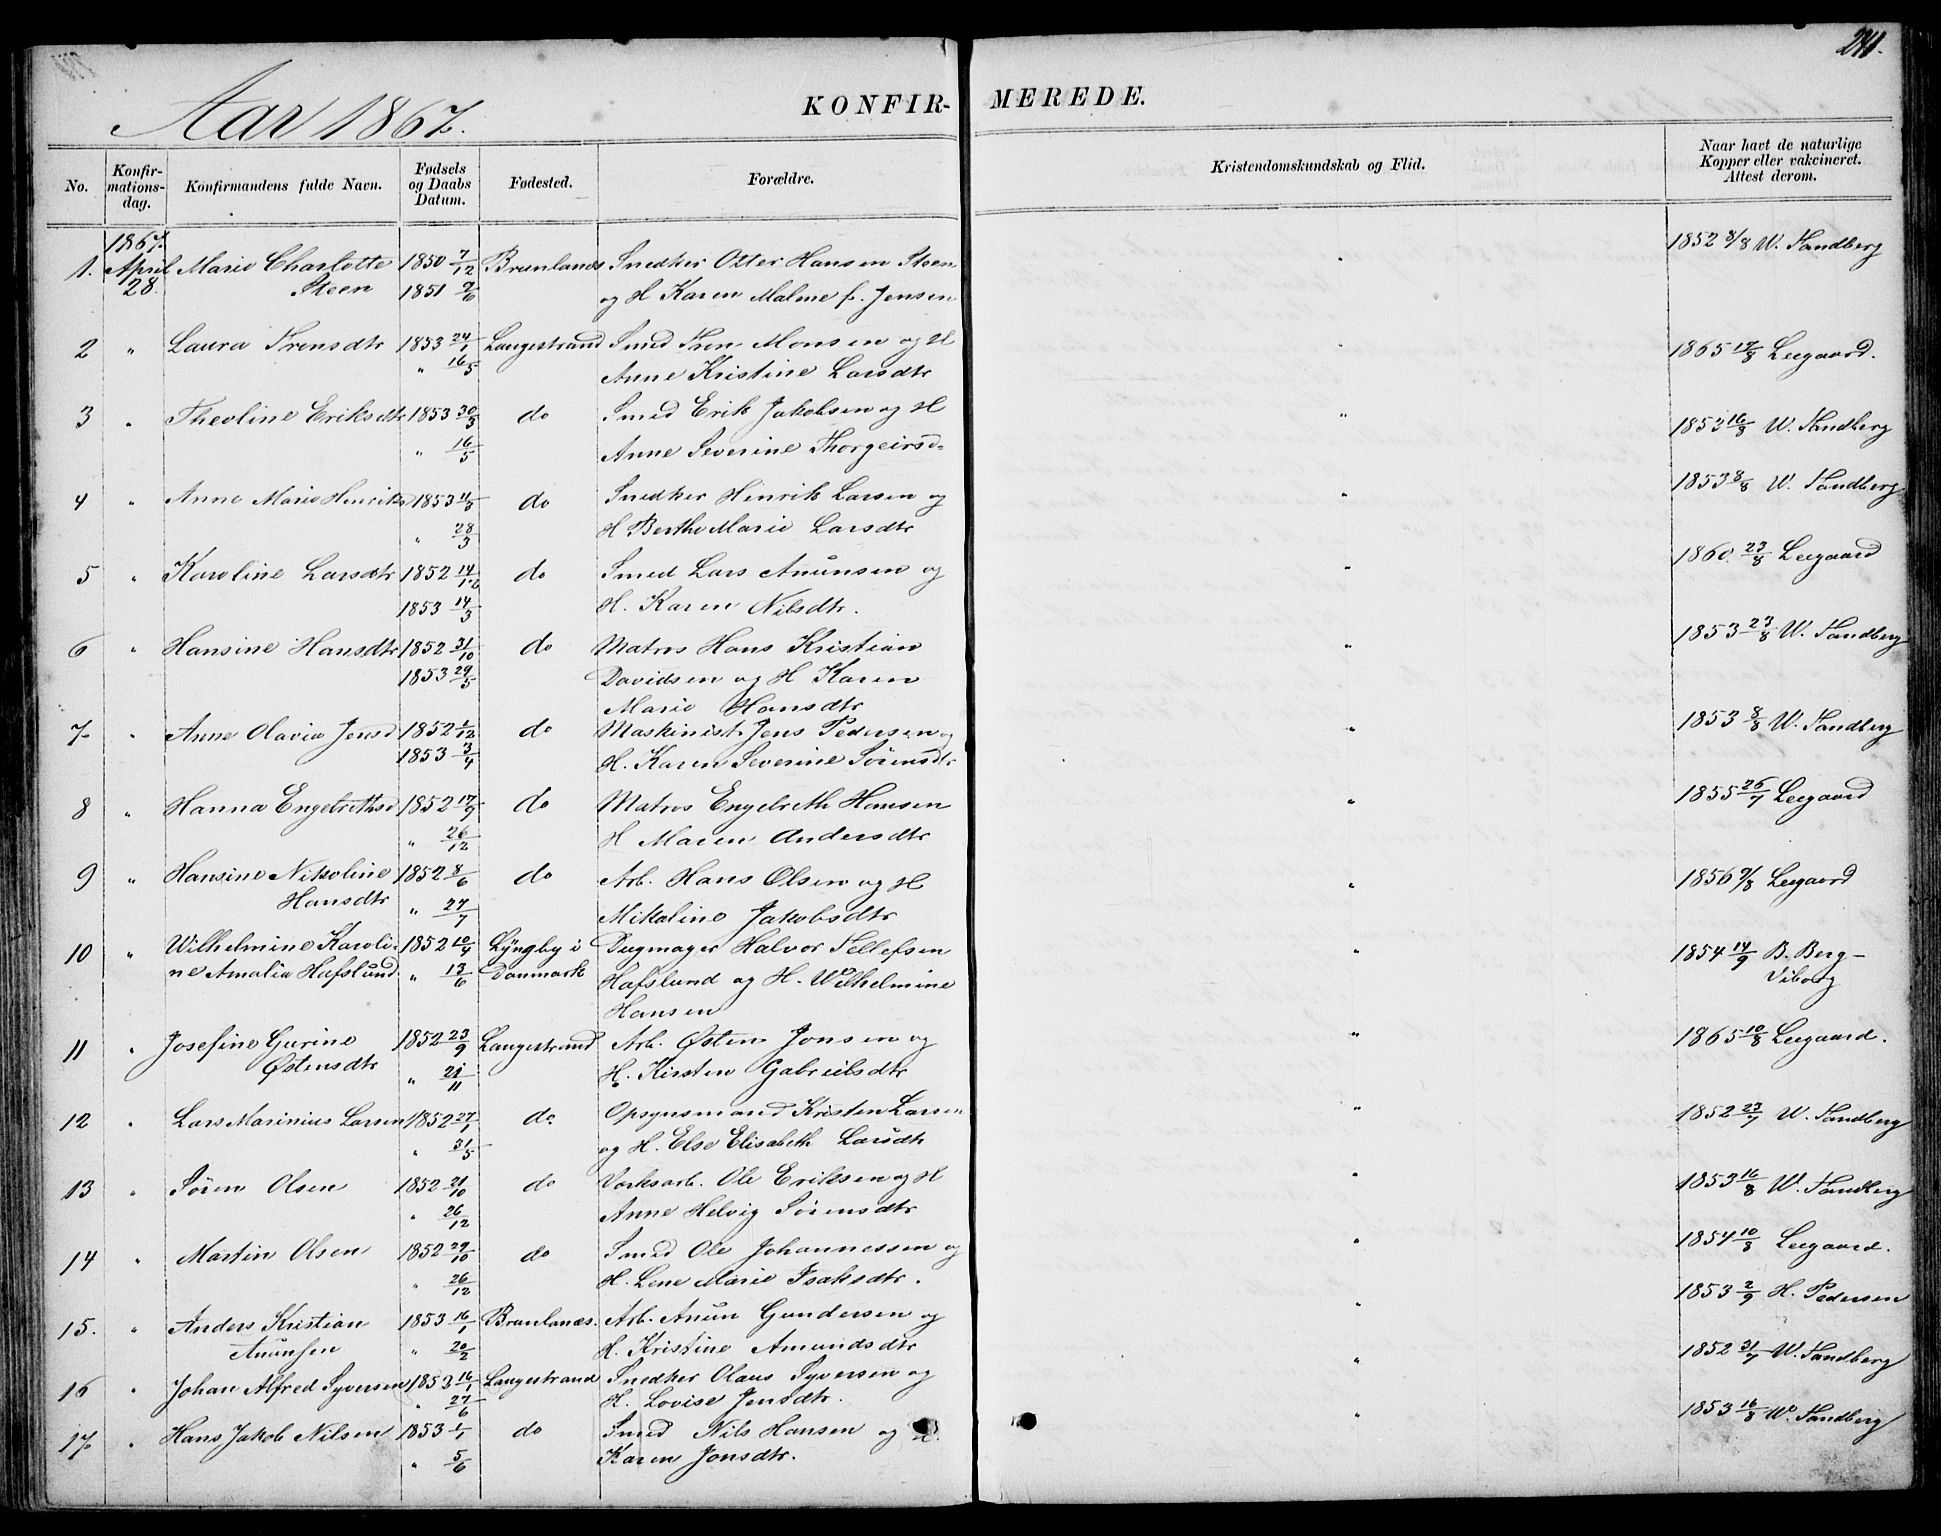 241.
Aar 1867.
KONFIR-MEREDE.
No. Konfir-mations-dag. Konfirmandens fulde Navn. Fødsels og Daabs Datum. Fødested. Forældre. Kristendomskundskab og Flid. Naar havt de naturlige Kopper eller vakcineret. Attest derom.
1867.
1. April Marie Charlotte 1850 7/12 Brunlanæs Snedker Otter Hansen Steen 1852 8/8 W. Sandberg
28. Steen 1851 9/6 og H Karen Malme f. Jensen
2 " Laura Trensdtr 1853 24/1 Langestrand Smed Tron Monsen og H " 1865 17/8 Leegaard.
" 16/5 Anne Kristine Larsdtr
3 " Theoline Eriksdtr 1853 30/3 do Smed Erik Jakobsen og H " 1853 16/8 W. Sandberg
" 16/5 Anne Severine Thorgeirsd=
4 " Anne Marie Henriks 1853 11/3 do Snedker Henrik Larsen og " 1853 8/8 W. Sandberg
" 28/3 H Berthe Marie Larsdtr
5 " Karoline Larsdtr 1852 14/12 do Smed Lars Anunsen og " 1860. 23/8 Leegaard
1853 14/3 H. Karen Nilsdtr.
6 " Hansine Hansdtr 1852 31/10 do Matros Hans Kristian " 1853 23/8 W. Sandberg
1853 29/5 Davidsen og H Karen
Marie Hansdtr
7 " Anne Olavia Jensd 1852 1/12 do Maskinist Jens Pedersen og " 1853 8/8 W. Sandberg
1853 3/4 H. Karen Severine Sørensdtr
8 " Hanna Engebrethsd 1852 17/9 do Matros Engebreth Hansen " 1855 26/7 Leegaard
" 26/12 H Maren Andersdtr
9 " Hansine Nikoline 1852 8/6 do Arb. Hans Olsen og H " 1856 9/8 Leegaard
Hansdtr " 27/7 Mikaline Jakobsdtr
10 " Wilhelmine Karoli- 1852 10/4 Lyngby i Dugmager Halvor Tellefsen " 1854 14/9 B. Berg-
ne Amalia Hafslund. " 13/6 Danmark Hafslund og H. Wilhelmine Viborg
Hansen
11 " Josefine Gurine 1852 23/9 Langestrand Arb. Østen Jonsen og " 1865 10/8 Leegaard.
Østensdtr " 21/11 H. Kirsten Gabrielsdtr
12 " Lars Marinius Larsen 1852 27/1 do Opsynsmand Kristen Larsen " 1852 23/7 W. Sandberg
" 31/5 og H. Else Elisabeth Larsdtr
13 " Søren Olsen 1852 21/10 do Værksarb. Ole Eriksen og H " 1853 16/8 W. Sandberg
" 26/12 Anne Helvig Sørensdtr
14 " Martin Olsen 1852 29/10 do Smed Ole Johannessen og " 1854 10/8 Leegaard.
" 26/12 H. Lene Marie Isaksdtr.
15. " Anders Kristian 1853 16/1 Brunlanæs. Arb. Anun Gundersen og " 1853 2/9 H. Pedersen
Anunsen " 20/2 H. Kristine Amundsdtr
16 " Johan Alfred Syversen 1853 16/1 Langestrand Snedker Olaus Syversen og " 1852 31/7 W. Sandberg
" 27/6 H. Lovise Jensdtr.
17 " Hans Jakob Nilsen 1853 1/1 do Smed Nils Hansen og H. " 1853 16/8 W. Sandberg
" 5/6 Karen Jonsdtr.